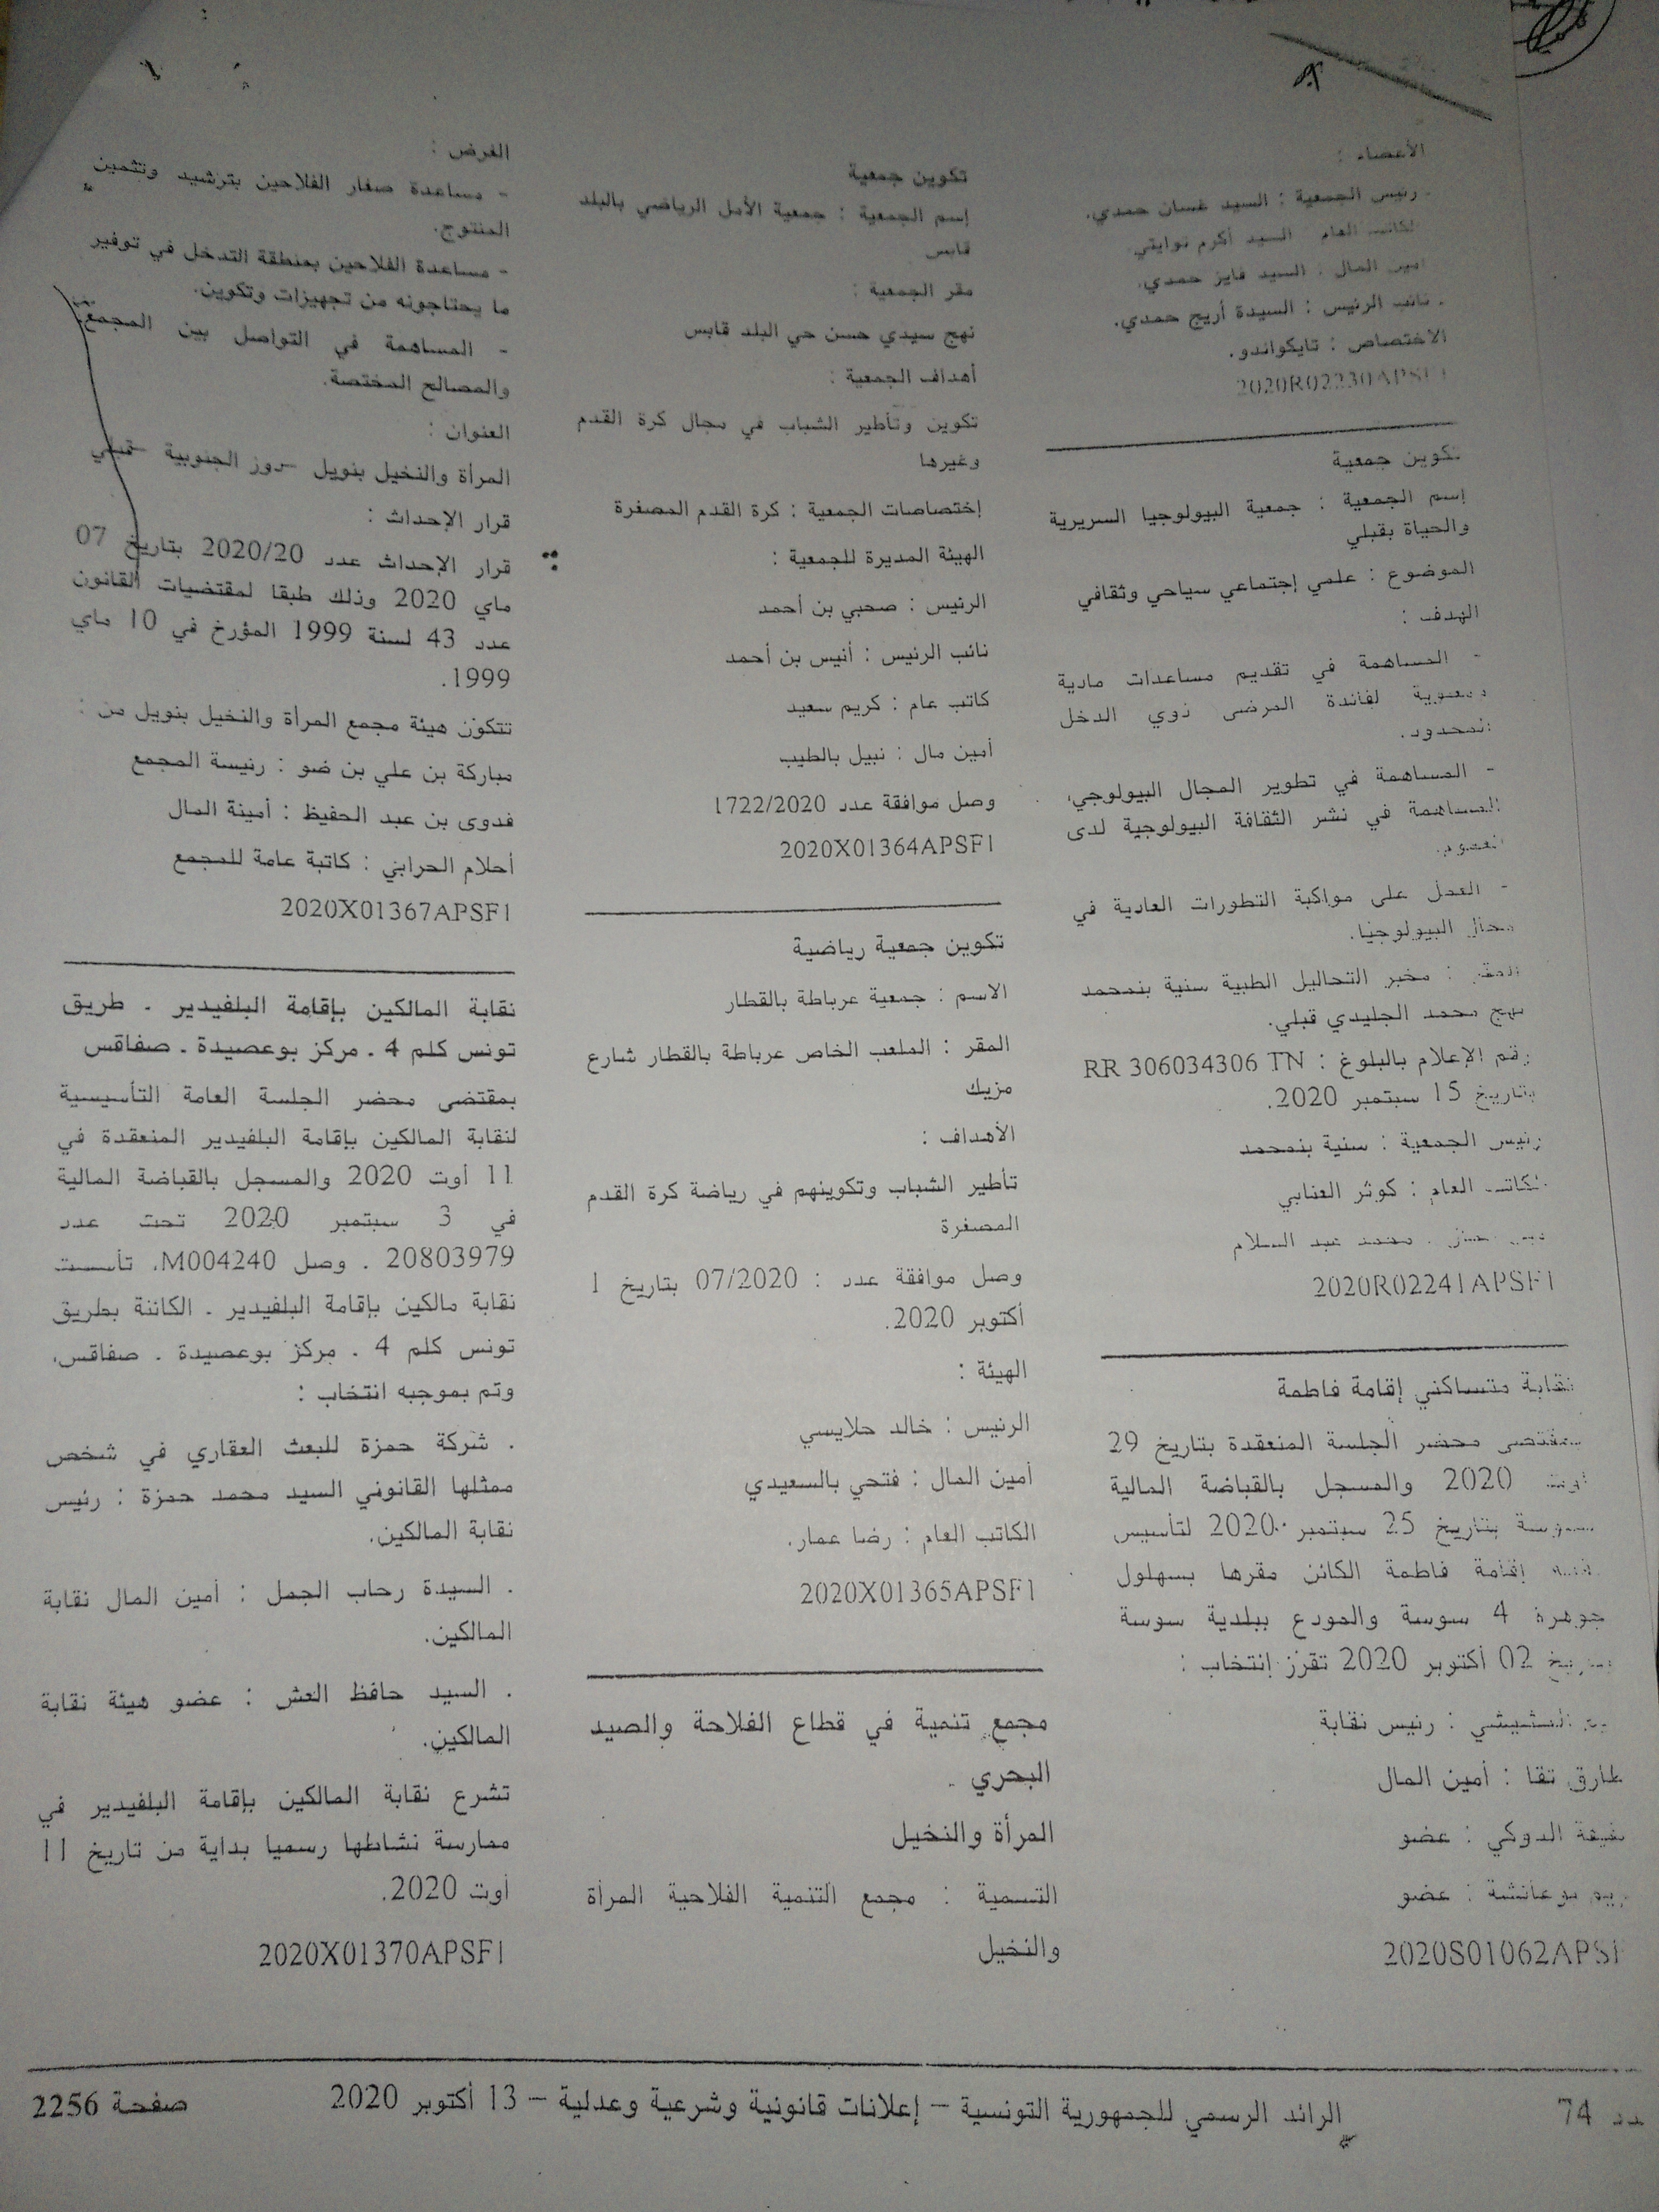 الأعضاء :
رئيس الجمعية : السيد غسان حمدي.
الكاتب العام السيد أكرم نوايتي
أمين المال : السيد فايز حمدي.
نائب الرئيس : السيدة أريج حمدي.
الاختصاص : تايكواندو.
2020R02230APSF1
تكوين جمعية
إسم الجمعية : جمعية البيولوجيا السريرية
والحياة بقبلي
الموضوع : علمي إجتماعي سياحي وثقافي
الهدف :
- المساهمة في تقديم مساعدات مادية
ومعنوية لفائدة المرضى ذوي الدخل
المحدود.
- المساهمة في تطوير المجال البيولوجي،
المساهمة في نشر الثقافة البيولوجية لدى
العموم.
- العمل على مواكبة التطورات العادية في
مجال البيولوجيا.
المقر : مخبر التحاليل الطبية سنية بنمحمد
نهج محمد الجليدي قبلي.
رقم الإعلام بالبلوغ : RR 306034306 TN
بتاريخ 15 سبتمبر 2020.
رئيس الجمعية : سنية بنمحمد
الكاتب العام : كوثر العنابي
محمد عبد السلام
2020R02241APSF1
نقابة متساكني إقامة فاطمة
بمقتضى محضر الجلسة المنعقدة بتاريخ 29
أوت 2020 والمسجل بالقباضة المالية
بسوسة بتاريخ 25 سبتمبر 2020 لتأسيس
نقابة إقامة فاطمة الكائن مقرها بسهلول
جوهرة 4 سوسة والمودع ببلدية سوسة
بتاريخ 02 أكتوبر 2020 تقرّر إنتخاب :
الشيشي : رئيس نقابة
طارق تقا : أمين المال
الدوكي : عضو
ريم بوعائشة : عضو
2020S01062APSF
تكوين جمعية
إسم الجمعية : جمعية الأمل الرياضي بالبلد
قابس
مقر الجمعية :
نهج سيدي حسن حي البلد قابس
أهداف الجمعية :
تكوين وتأطير الشباب في مجال كرة القدم
وغيرها
إختصاصات الجمعية : كرة القدم المصغرة
الهيئة المديرة للجمعية :
الرئيس : صحبي بن أحمد
نائب الرئيس : أنيس بن أحمد
كاتب عام : كريم سعيد
أمين مال : نبيل بالطيب
وصل موافقة عدد 1722/2020
2020X01364APSF1
تكوين جمعية رياضية
الاسم : جمعية عرباطة بالقطار
المقر : الملعب الخاص عرباطة بالقطار شارع
مزيك
الأهداف :
تأطير الشباب وتكوينهم في رياضة كرة القدم
المصغرة
وصل موافقة عدد : 07/2020 بتاريخ 1
أكتوبر 2020.
الهيئة :
الرئيس : خالد حلايسي
أمين المال : فتحي بالسعيدي
الكاتب العام : رضا عمار.
2020X01365APSF1
مجمع تنمية في قطاع الفلاحة والصيد
البحري
المرأة والنخيل
التسمية : مجمع التنمية الفلاحية المرأة
والنخيل
الغرض :
- مساعدة صغار الفلاحين بترشيد وتثمين
المنتوج.
- مساعدة الفلاحين بمنطقة التدخل في توفير
ما يحتاجونه من تجهيزات وتكوين.
- المساهمة في التواصل بين المجمع
والمصالح المختصة.
العنوان :
المرأة والنخيل بنويل -دوز الجنوبية -قبلي
قرار الإحداث :
قرار الإحداث عدد 2020/20 بتاريخ 07
ماي 2020 وذلك طبقا لمقتضيات القانون
عدد 43 لسنة 1999 المؤرخ في 10 ماي
1999.
تتكوّن هيئة مجمع المرأة والنخيل بنويل من :
مباركة بن علي بن ضو : رئيسة المجمع
فدوى بن عبد الحفيظ : أمينة المال
أحلام الحرابي : كاتبة عامة للمجمع
2020X01367APSF1
نقابة المالكين بإقامة البلفيدير . طريق
تونس كلم 4 . مركز بوعصيدة . صفاقس
بمقتضى محضر الجلسة العامة التأسيسية
لنقابة المالكين بإقامة البلفيدير المنعقدة في
11 أوت 2020 والمسجل بالقباضة المالية
في 3 سبتمبر 2020 تحت عدد
20803979 . وصل M004240، تأسست
نقابة مالكين بإقامة البلفيدير . الكائنة بطريق
تونس كلم 4 . مركز بوعصيدة . صفاقس،
وتم بموجبه انتخاب :
. شركة حمزة للبعث العقاري في شخص
ممثلها القانوني السيد محمد حمزة : رئيس
نقابة المالكين.
. السيدة رحاب الجمل : أمين المال نقابة
المالكين.
. السيد حافظ العش : عضو هيئة نقابة
المالكين.
تشرع نقابة المالكين بإقامة البلفيدير في
ممارسة نشاطها رسميا بداية من تاريخ 11
أوت 2020.
2020X01370APSF1
عدد 74
الرائد الرسمي للجمهورية التونسية – إعلانات قانونية وشرعية وعدلية – 13 أكتوبر 2020
صفحة 2256